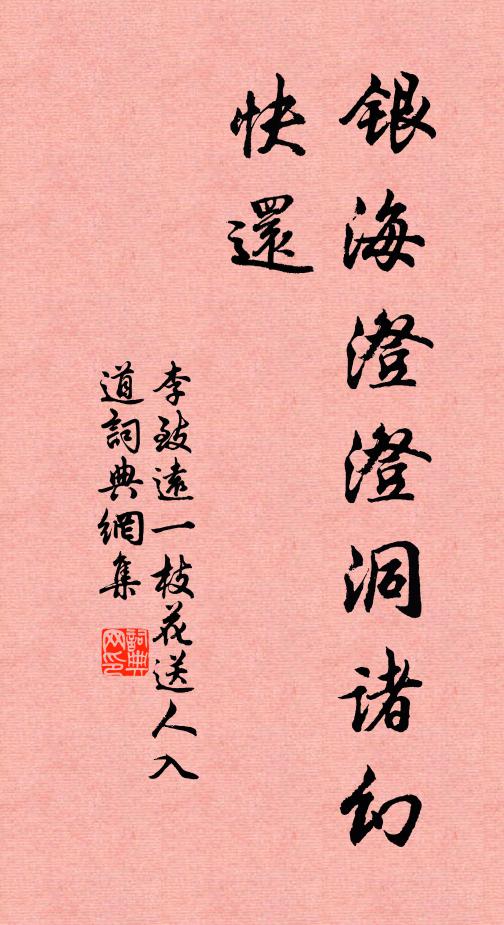 銀海澄澄洞諸幻
快還
李致遠一枝花送人入
道詞典網集
詞典
网印